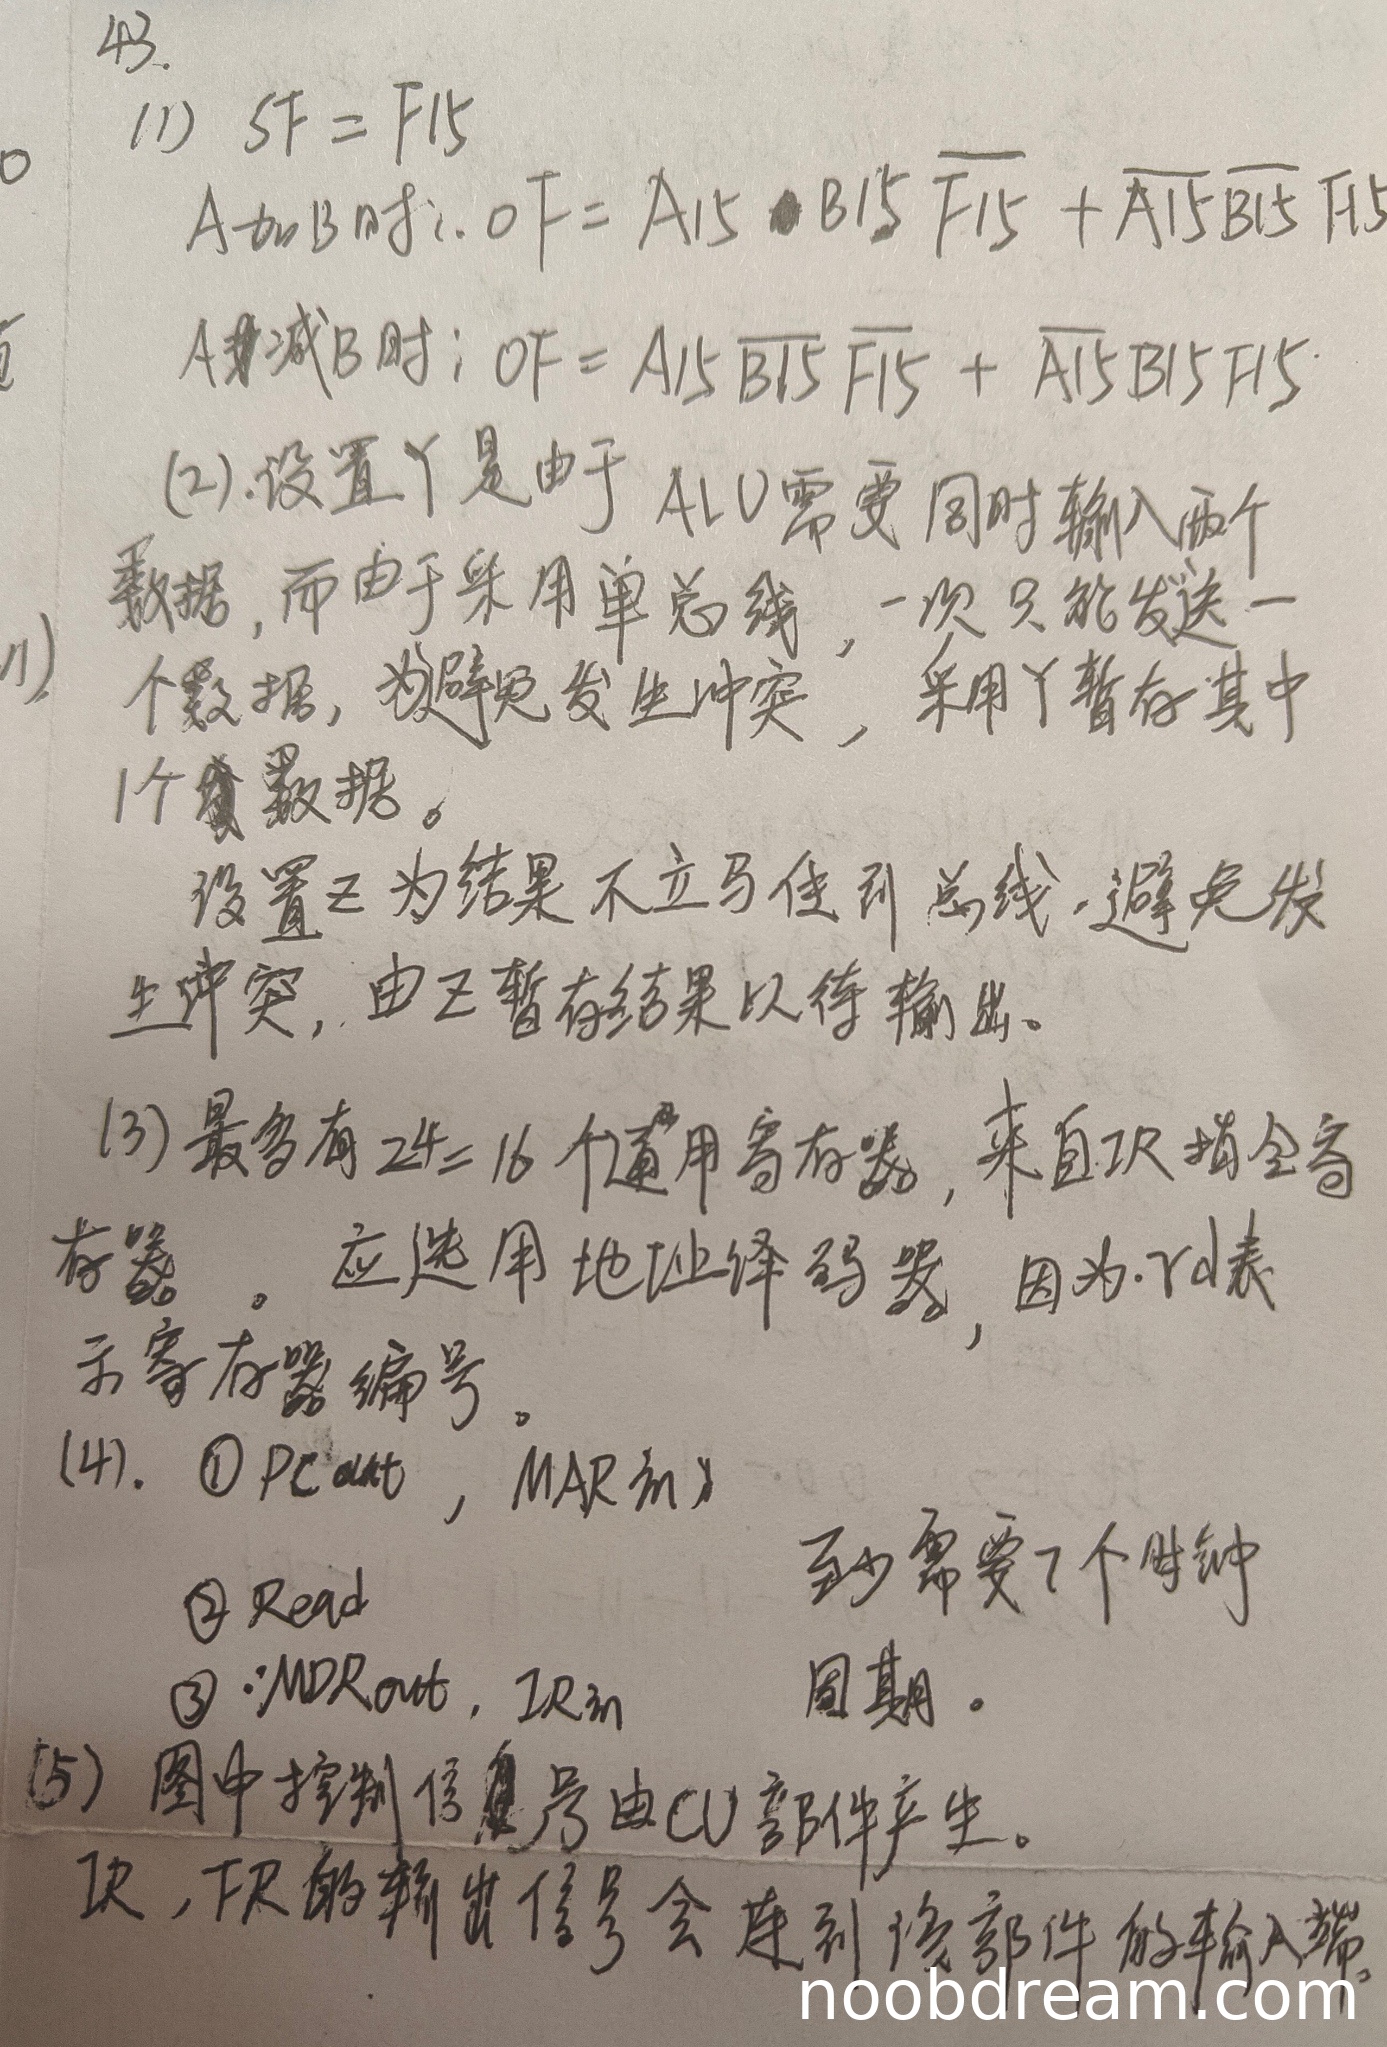 43.
(1) SF = F15
A加B时: OF = A15 · B15 F̅1̅5̅ + A̅1̅5̅ B̅1̅5̅ F15
A减B时; OF = A15 B̅1̅5̅ F̅1̅5̅ + A̅1̅5̅ B15 F15
(2).设置Y是由于ALU需要同时输入两个
数据,而由于采用单总线,一次只能发送一
个数据,为避免发生冲突,采用Y暂存其中
1个数据。
设置Z为结果不立马传到总线.避免发
生冲突,由Z暂存结果以待输出。
(3)最多有24=16个通用寄存器,来自IR指令寄
存器。应选用地址译码器,因为rd表
示寄存器编号。
(4). ①PCout, MARin
至少需要7个时钟
② Read
③ MDRout, IRin 周期。
(5) 图中控制信号由CU部件产生。
IR,FR的输出信号会连到该部件的输入端。
0
noobdream.com